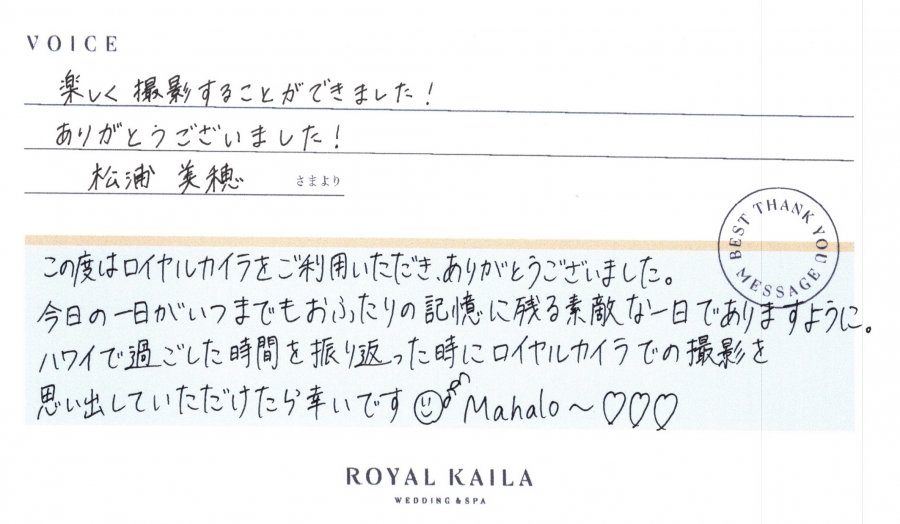 VOICE
楽しく撮影することができました!
ありがとうございました!
松浦 美穂 さまより
BEST THANK YOU MESSAGE
この度はロイヤルカイラをご利用いただき、ありがとうございました。
今日の一日がいつまでもおふたりの記憶に残る素敵な一日でありますように。
ハワイで過ごした時間を振り返った時にロイヤルカイラでの撮影を
思い出していただけたら幸いです Mahalo~♡♡♡
ROYAL KAILA
WEDDING & SPA